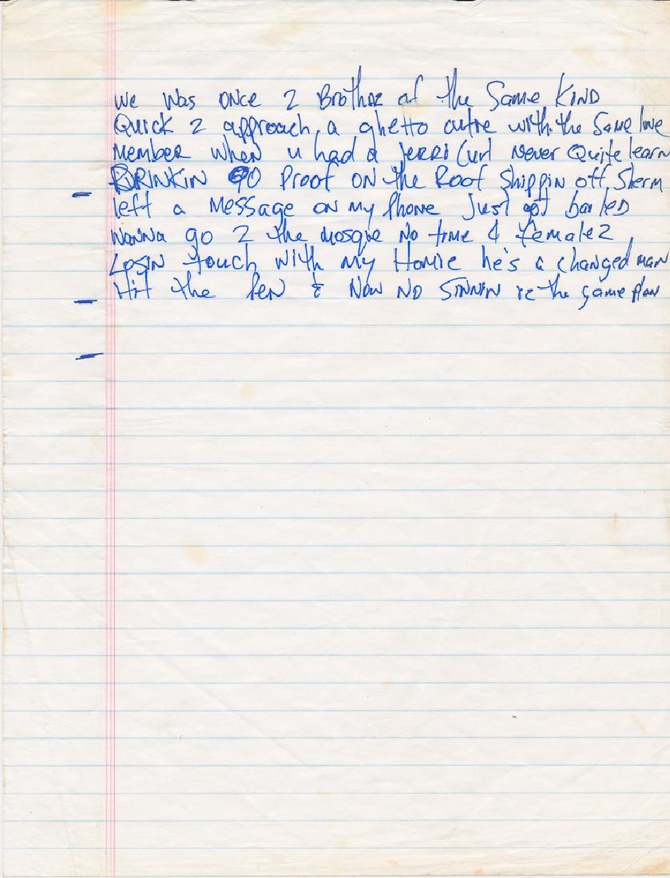 We Was ONce 2 Brothaz of the Same KIND
Quick 2 approach, a ghetto cutie with the Same line
Member when u had a JERRI Curl Never Quite learn
DRINKIN 90 Proof ON the Roof Shippin off Sherm
left a Message on my Phone Just got bailed
Wanna go 2 the mosque No time 4 femalez
Losin touch with my Homie he's a changed man
Hit the PEN & Now NO SINNIN is the game plan